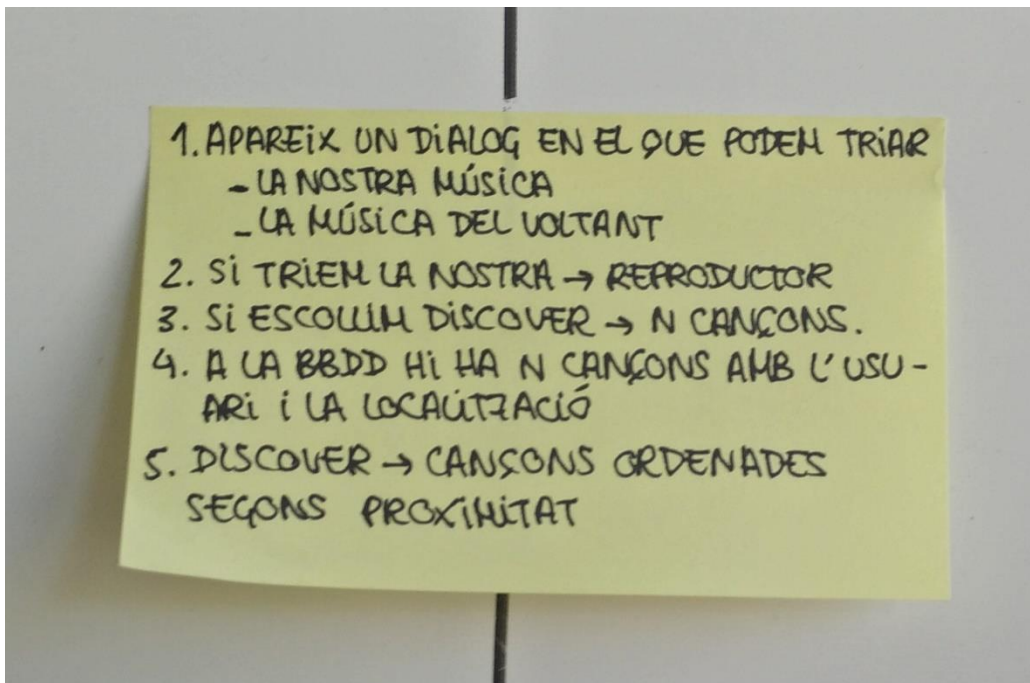 1. APAREIX UN DIALOG EN EL QUE PODEM TRIAR
- LA NOSTRA MÚSICA
- LA MÚSICA DEL VOLTANT
2. SI TRIEM LA NOSTRA → REPRODUCTOR
3. SI ESCOLLIM DISCOVER → N CANÇONS.
4. A LA BBDD HI HA N CANÇONS AMB L'USU-
ARI I LA LOCALITZACIÓ
5. DISCOVER → CANÇONS ORDENADES
SEGONS PROXIMITAT